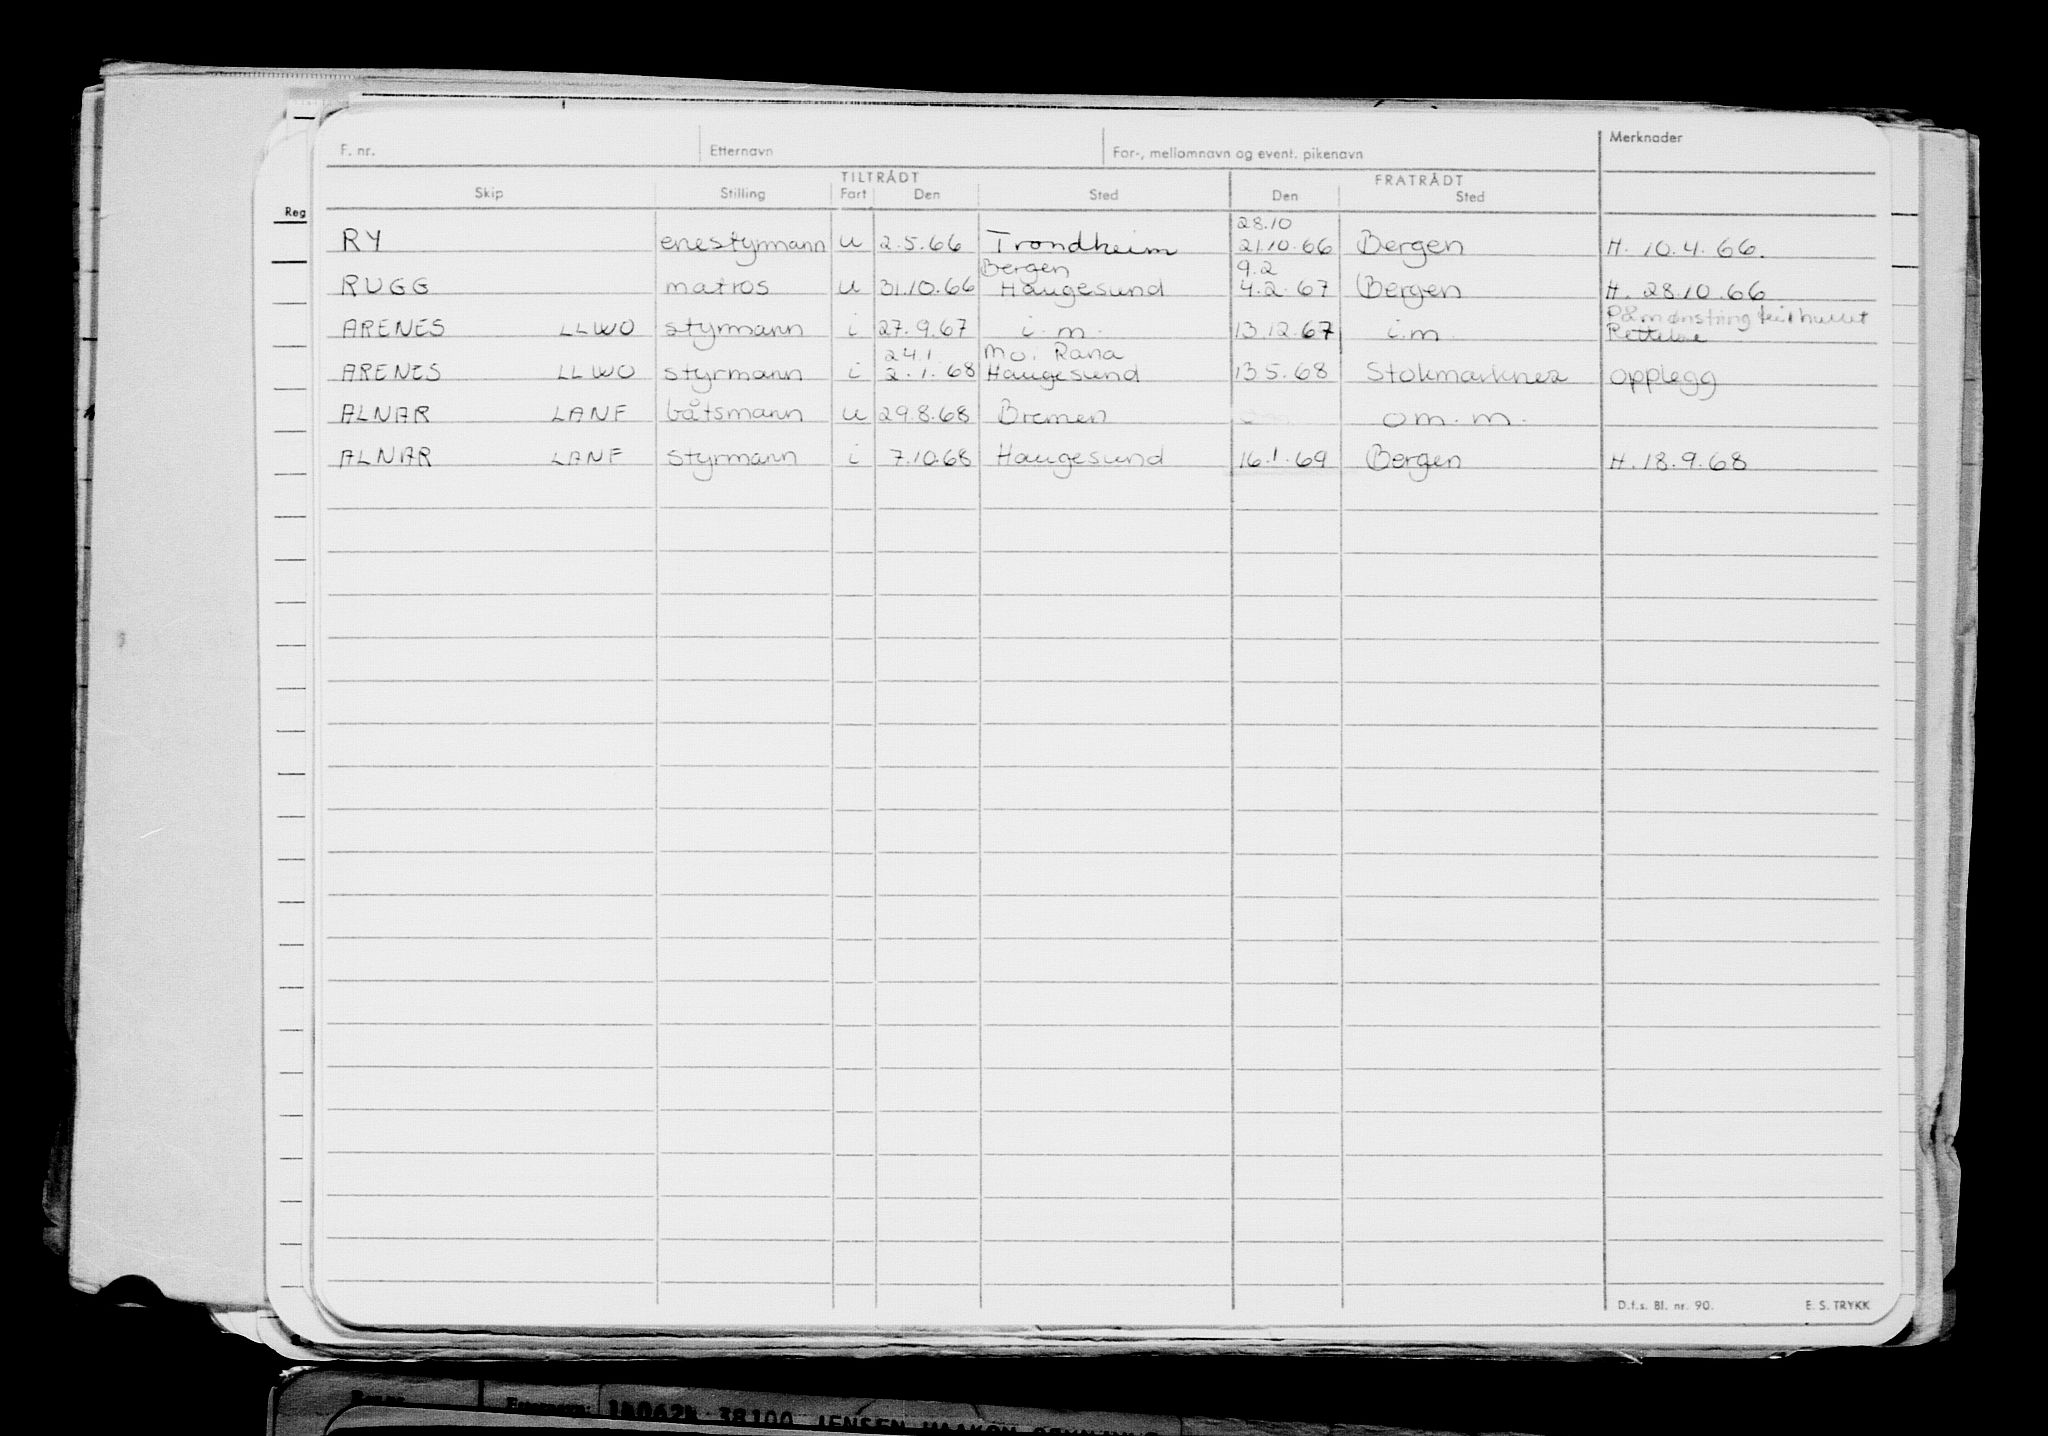 F. nr. Etternavn For-, mellomnavn og event. pikenavn Merknader
TILTRÅDT FRATRÅDT
Skip Stilling Fart Den Sted Den Sted
Reg
28.10
RY enestyrmann u 2.5.66 Trondheim 21.10.66 Bergen H. 10.4.66.
Bergen 9.2
RUGG matros u 31.10.66 Haugesund 4.2.67 Bergen H. 28.10.66
Påmønstring
ARENES LLWO styrmann i 27.9.67 i.m. 13.12.67 i.m.
24.1. Mo i Rana
ARENES LLWO styrmann i 2.1.68 Haugesund 13.5.68 Stokmarknes opplegg
ALNAR LANF båtsmann u 29.8.68 Bremen om.m.
ALNAR LANF styrmann i 7.10.68 Haugesund 16.1.69 Bergen H. 18.9.68
D.f.s. Bl. nr. 90. E. S. TRYKK
Etternavn 38100 JENSEN HAAKON